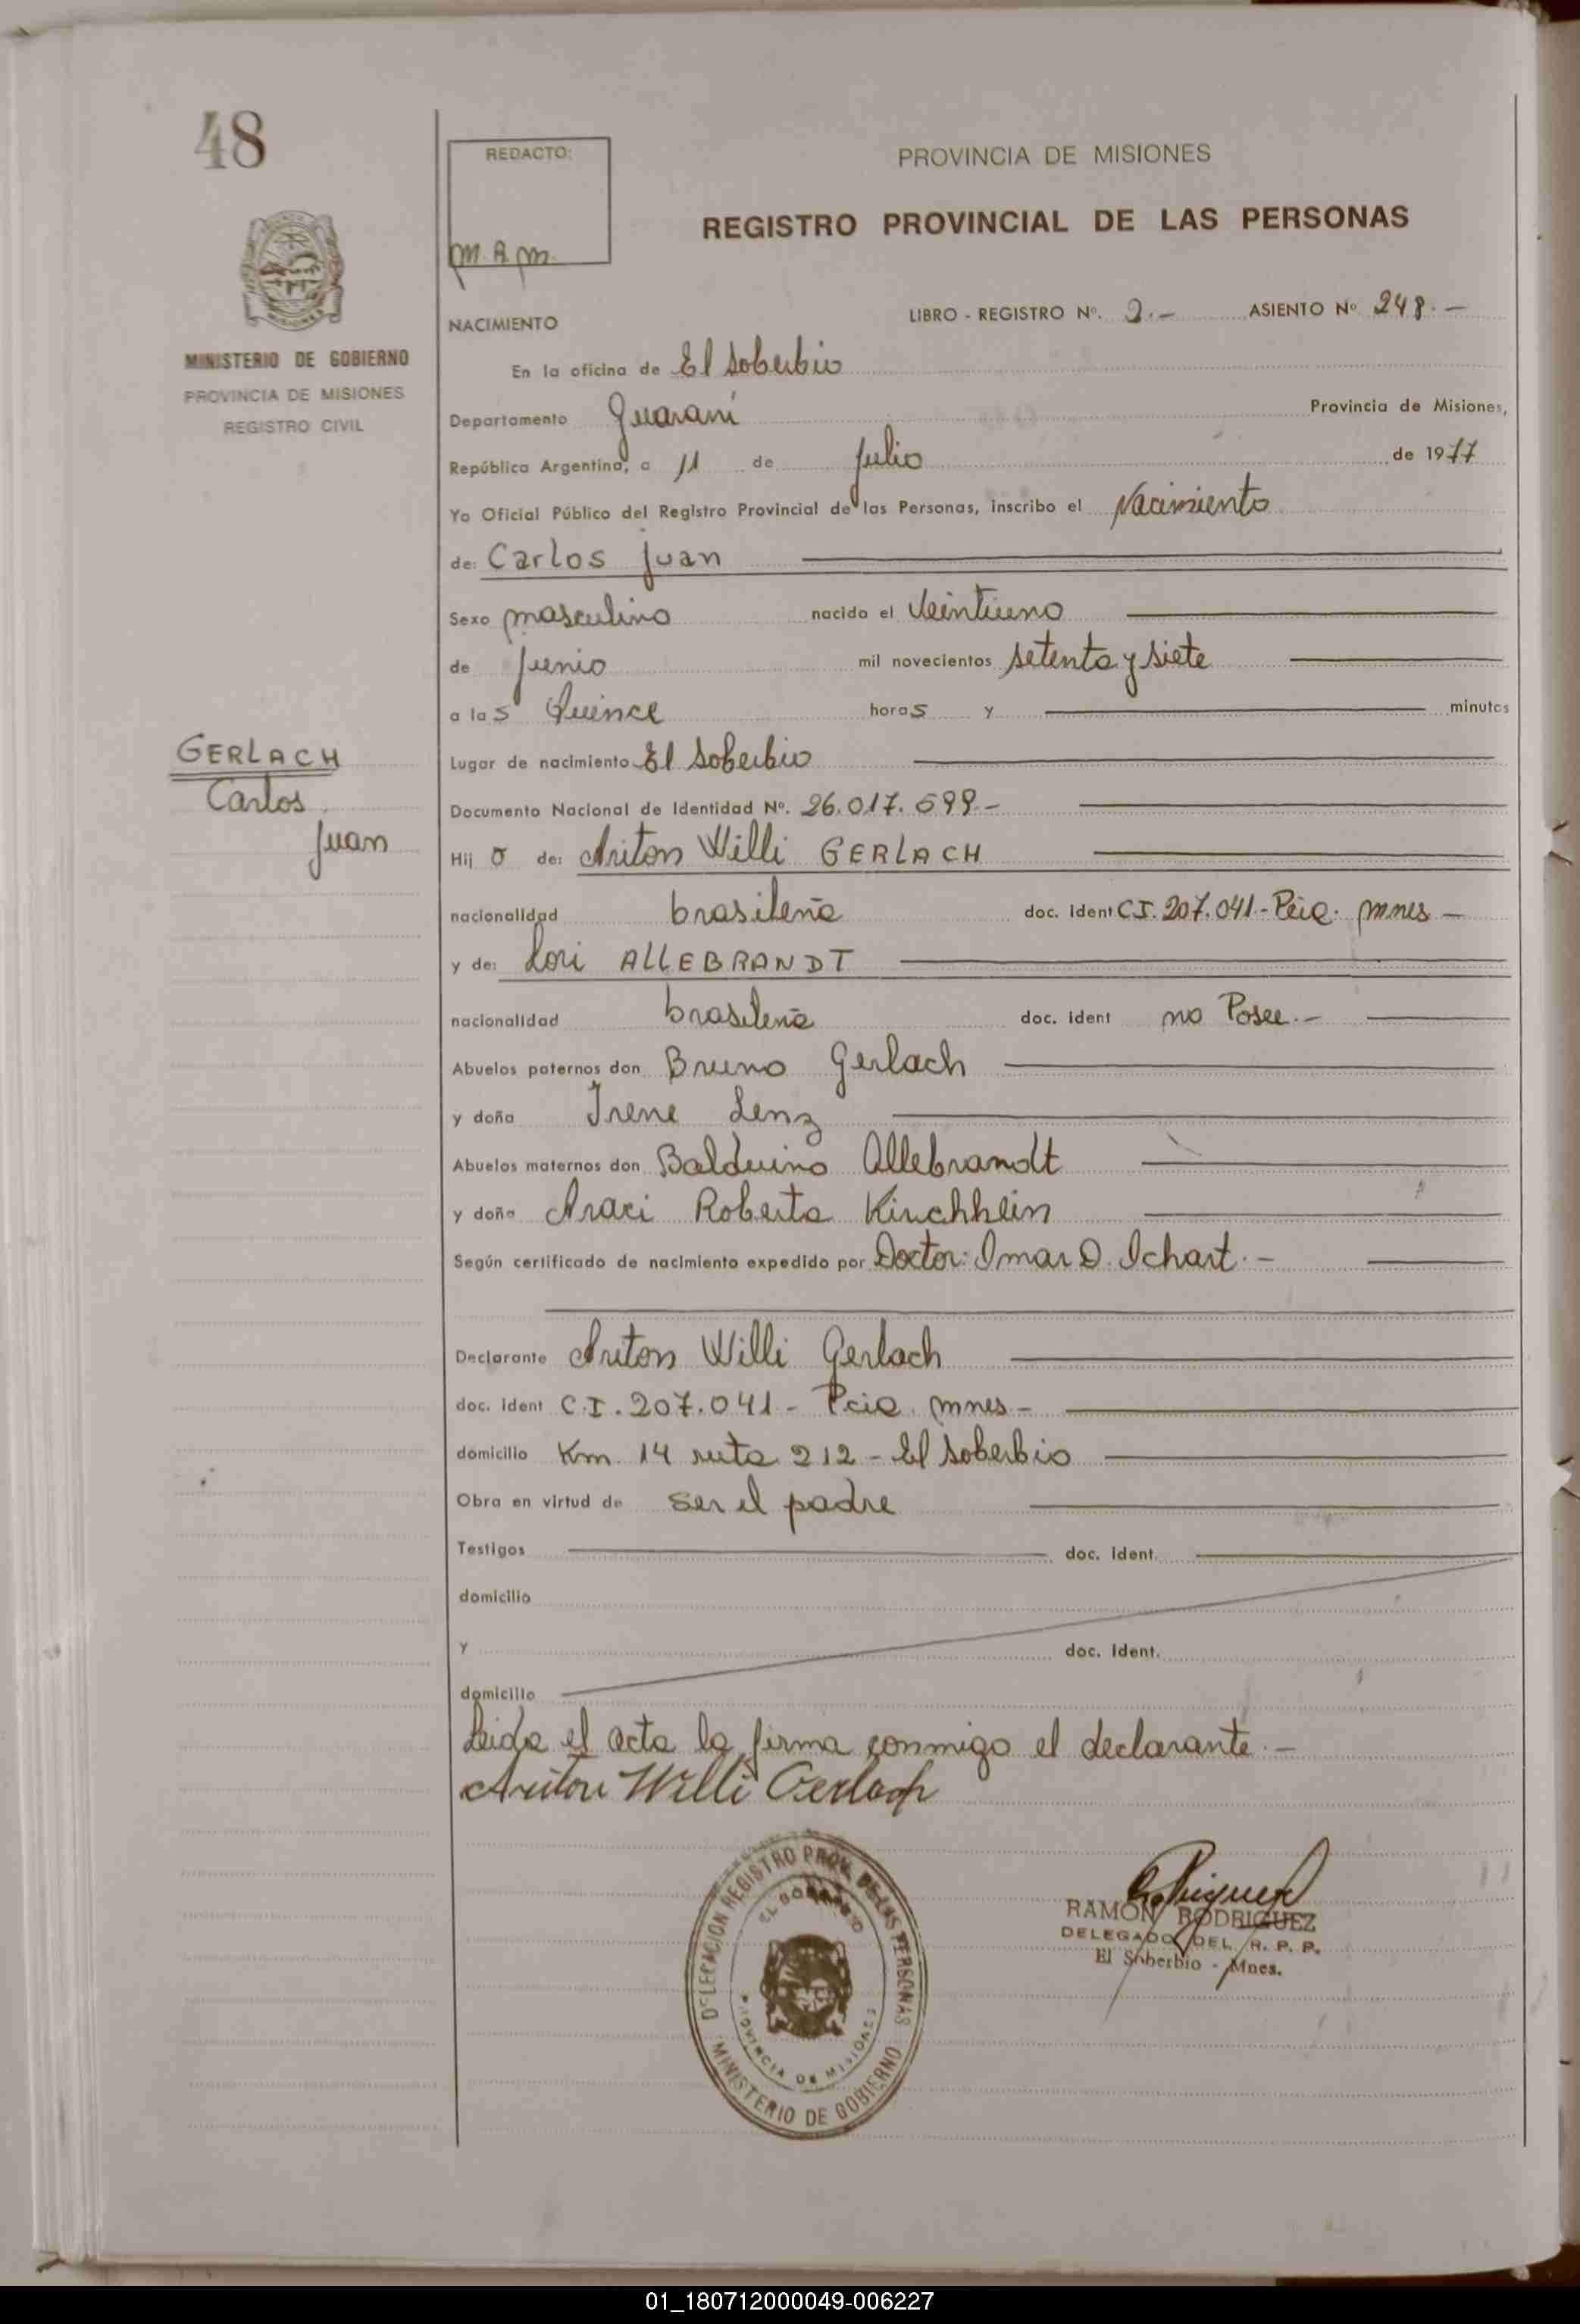 48
REDACTO:
M.A.M.
PROVINCIA DE MISIONES
REGISTRO PROVINCIAL DE LAS PERSONAS
MINISTERIO DE GOBIERNO
PROVINCIA DE MISIONES
REGISTRO CIVIL
NACIMIENTO
LIBRO - REGISTRO Nº. 2.- ASIENTO Nº 248.-
En la oficina de El Soberbio
Departamento Guaraní Provincia de Misiones,
República Argentina, a 11 de Julio de 1977
Yo Oficial Público del Registro Provincial de las Personas, inscribo el Nacimiento
de: Carlos Juan
Sexo masculino nacido el Veintiuno
de Junio mil novecientos setenta y siete
a las Quince horas y minutos
GERLACH
Carlos
Juan
Lugar de nacimiento El Soberbio
Documento Nacional de Identidad Nº. 26.017.599.-
Hijo de: Ariton Willi GERLACH
nacionalidad brasileña doc. ident C.I. 207.041 - Pcia. Mnes -
y de: Lori ALLEBRANDT
nacionalidad brasileña doc. ident no Posee.-
Abuelos paternos don Bruno Gerlach
y doña Irene Lenz
Abuelos maternos don Balduino Allebrandt
y doña Araci Roberta Kirchhein
Según certificado de nacimiento expedido por Doctor: Omar D. Ichart.-
Declarante Ariton Willi Gerlach
doc. ident C.I. 207.041 - Pcia. Mnes -
domicilio Km. 14 ruta 212 - El Soberbio
Obra en virtud de ser el padre
Testigos doc. ident.
domicilio
y doc. ident.
domicilio
Leida el acta la firma conmigo el declarante.-
Ariton Willi Gerlach
DELEGACION REGISTRO PROV. DE LAS PERSONAS
EL SOBERBIO
PROVINCIA DE MISIONES
MINISTERIO DE GOBIERNO
RAMON RODRIGUEZ
DELEGADO DEL R. P. P.
El Soberbio - Mnes.
01_180712000049-006227